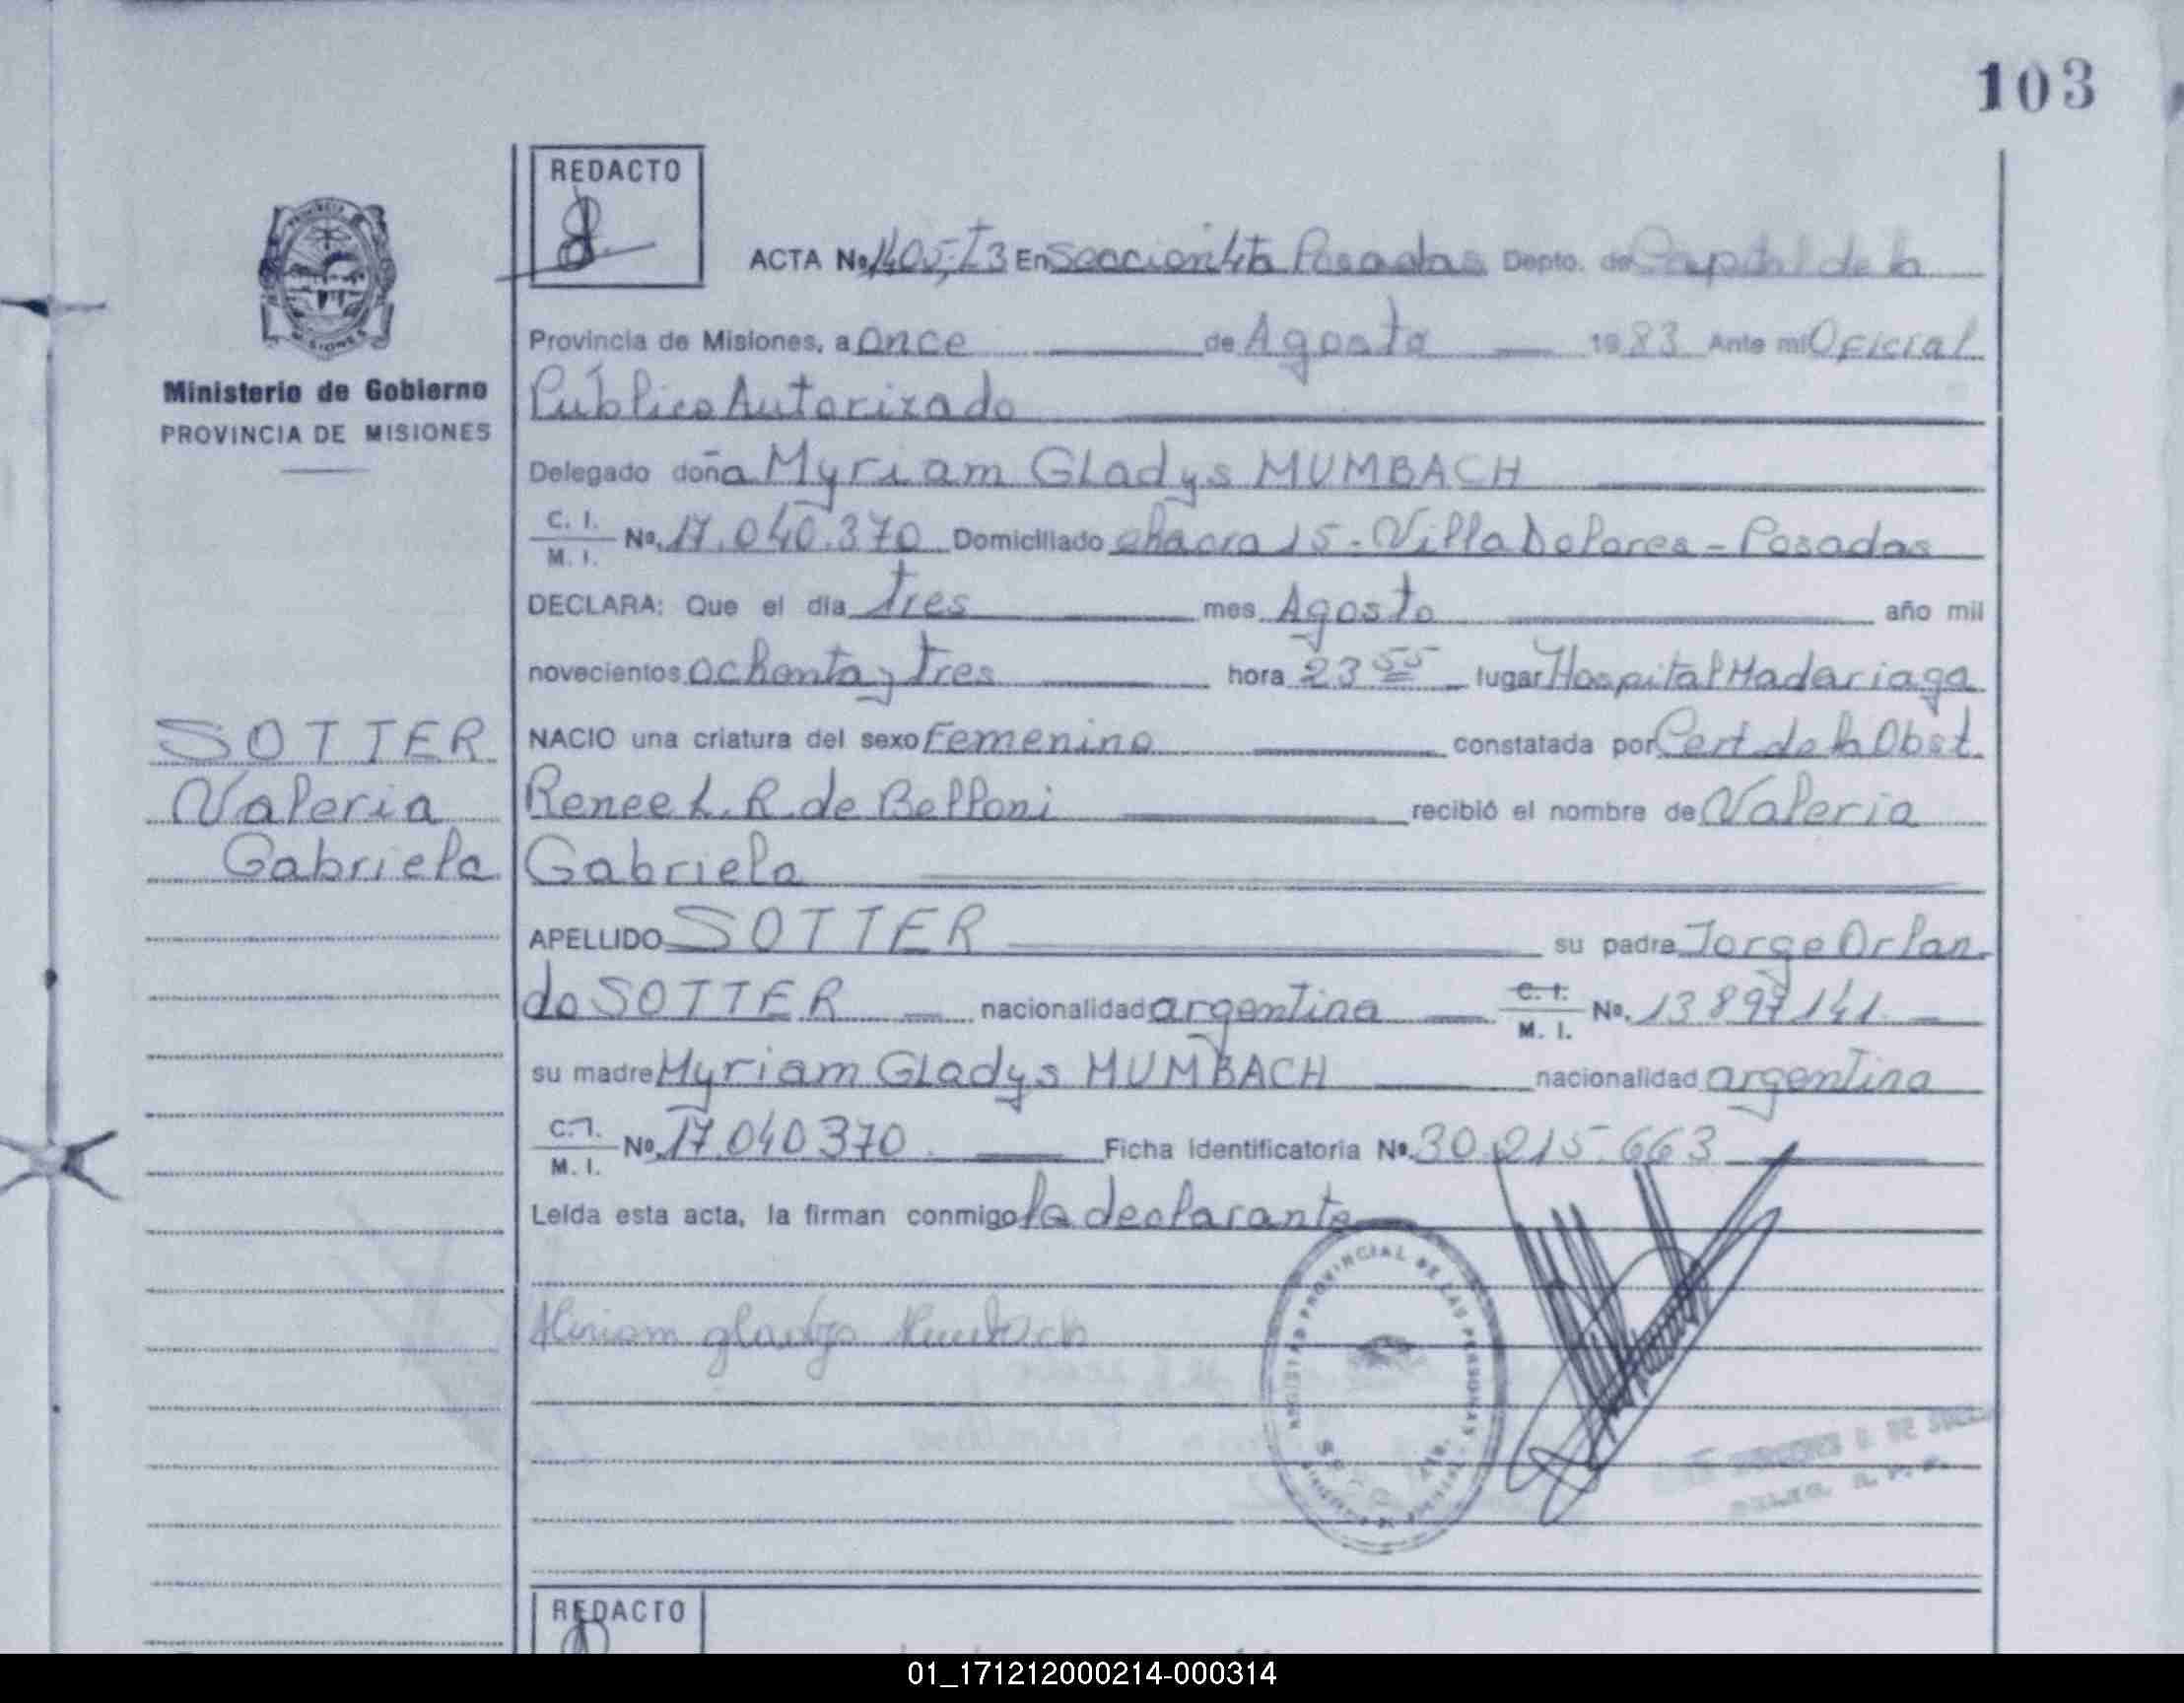 103
REDACTO
ACTA No. 1405, T3 En Seccion 4ta Posadas Depto. de Capital de la
Provincia de Misiones, a once de Agosto 1983 Ante mi Oficial
Ministerio de Gobierno
Público Autorizado
PROVINCIA DE MISIONES
Delegado doña Myriam Gladys MUMBACH
C. I.
M. I.
No. 17.040.370 Domiciliado chacra 15 - Villa Dolores - Posadas
DECLARA: Que el día tres mes Agosto año mil
novecientos ochenta y tres hora 23 55 lugar Hospital Madariaga
SOTTER
NACIO una criatura del sexo Femenino constatada por Cert de la Obst.
Valeria
Renee L. R. de Belloni recibió el nombre de Valeria
Gabriela
Gabriela
APELLIDO SOTTER su padre Jorge Orlan-
do SOTTER nacionalidad argentina C. I. M. I. No. 13897141
su madre Myriam Gladys MUMBACH nacionalidad argentina
C. I.
M. I.
No. 17.040370 Ficha Identificatoria No. 30.215.663
Leída esta acta, la firman conmigo la declarante
Miriam gladys Mumbach
REGISTRO PROVINCIAL DE LAS PERSONAS
REDACTO
01_171212000214-000314